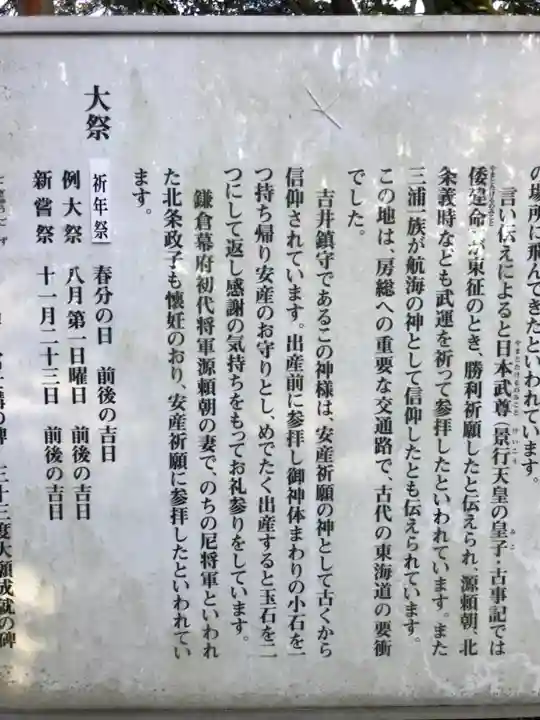 の場所に飛んできたといわれています。
言い伝えによると日本武尊（景行天皇の皇子・古事記では
倭建命）が東征のとき、勝利祈願したと伝えられ、源頼朝、北
条義時なども武運を祈って参拝したといわれています。また
三浦一族が航海の神として信仰したとも伝えられています。
この地は、房総への重要な交通路で、古代の東海道の要衝
でした。
吉井鎮守であるこの神様は、安産祈願の神として古くから
信仰されています。出産前に参拝し御神体まわりの小石を一
つ持ち帰り安産のお守りとし、めでたく出産すると玉石を二
つにして返し感謝の気持ちをもってお礼参りをしています。
鎌倉幕府初代将軍源頼朝の妻で、のちの尼将軍といわれ
た北条政子も懐妊のおり、安産祈願に参拝したといわれてい
ます。
大祭
祈年祭 春分の日 前後の吉日
例大祭 八月第一日曜日 前後の吉日
新嘗祭 十一月二十三日 前後の吉日
三十三度大願成就の碑